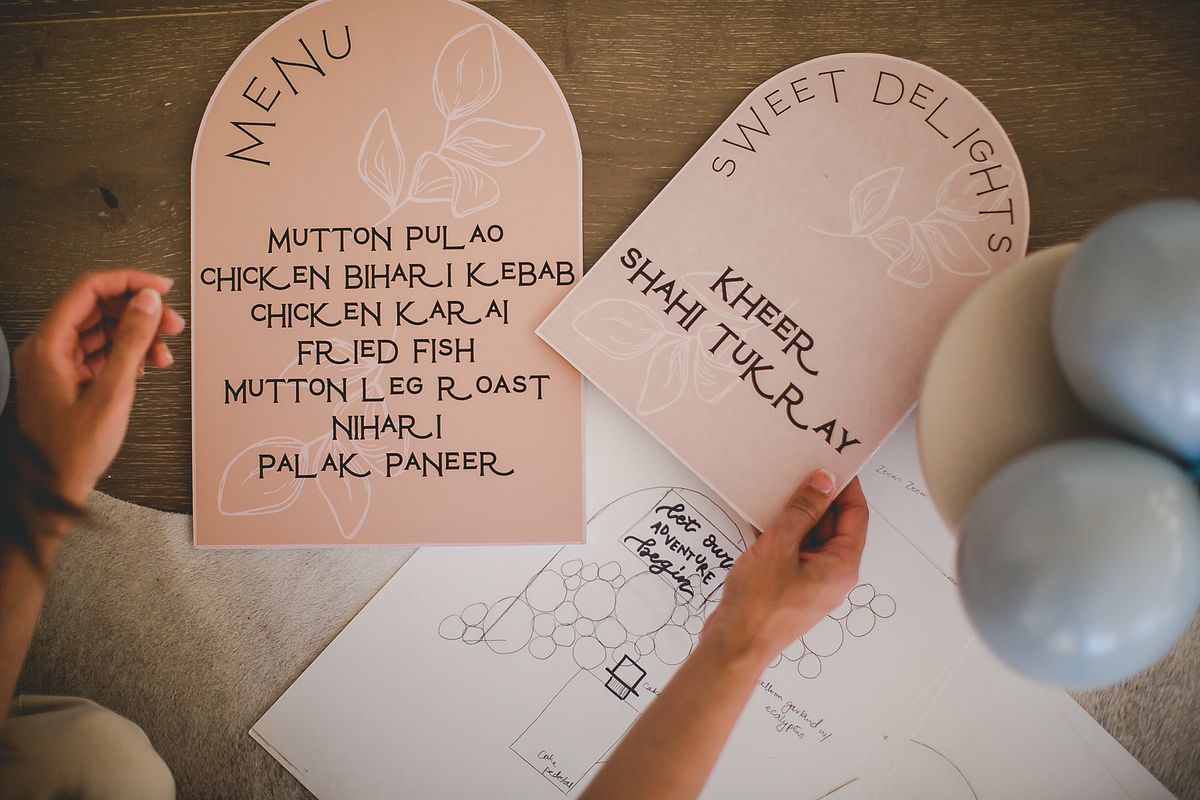 MENU
MUTTON PULAO
CHICKEN BIHARI KEBAB
CHICKEN KARAI
FRIED FISH
MUTTON LEG ROAST
NIHARI
PALAK PANEER
SWEET DELIGHTS
KHEER
SHAHI TUKRAY
Zoom Zoom
let our
ADVENTURE
begin
cake
balloon garland w/
ecalyptus
cake
pedestal